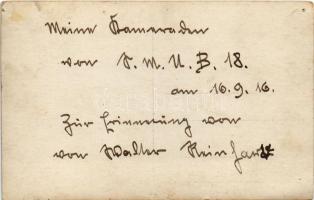 Meine Kameraden
von S. M. U. B. 18.
am 16.9.16.
Zur Erinnerung von
von Walter Reinhardt